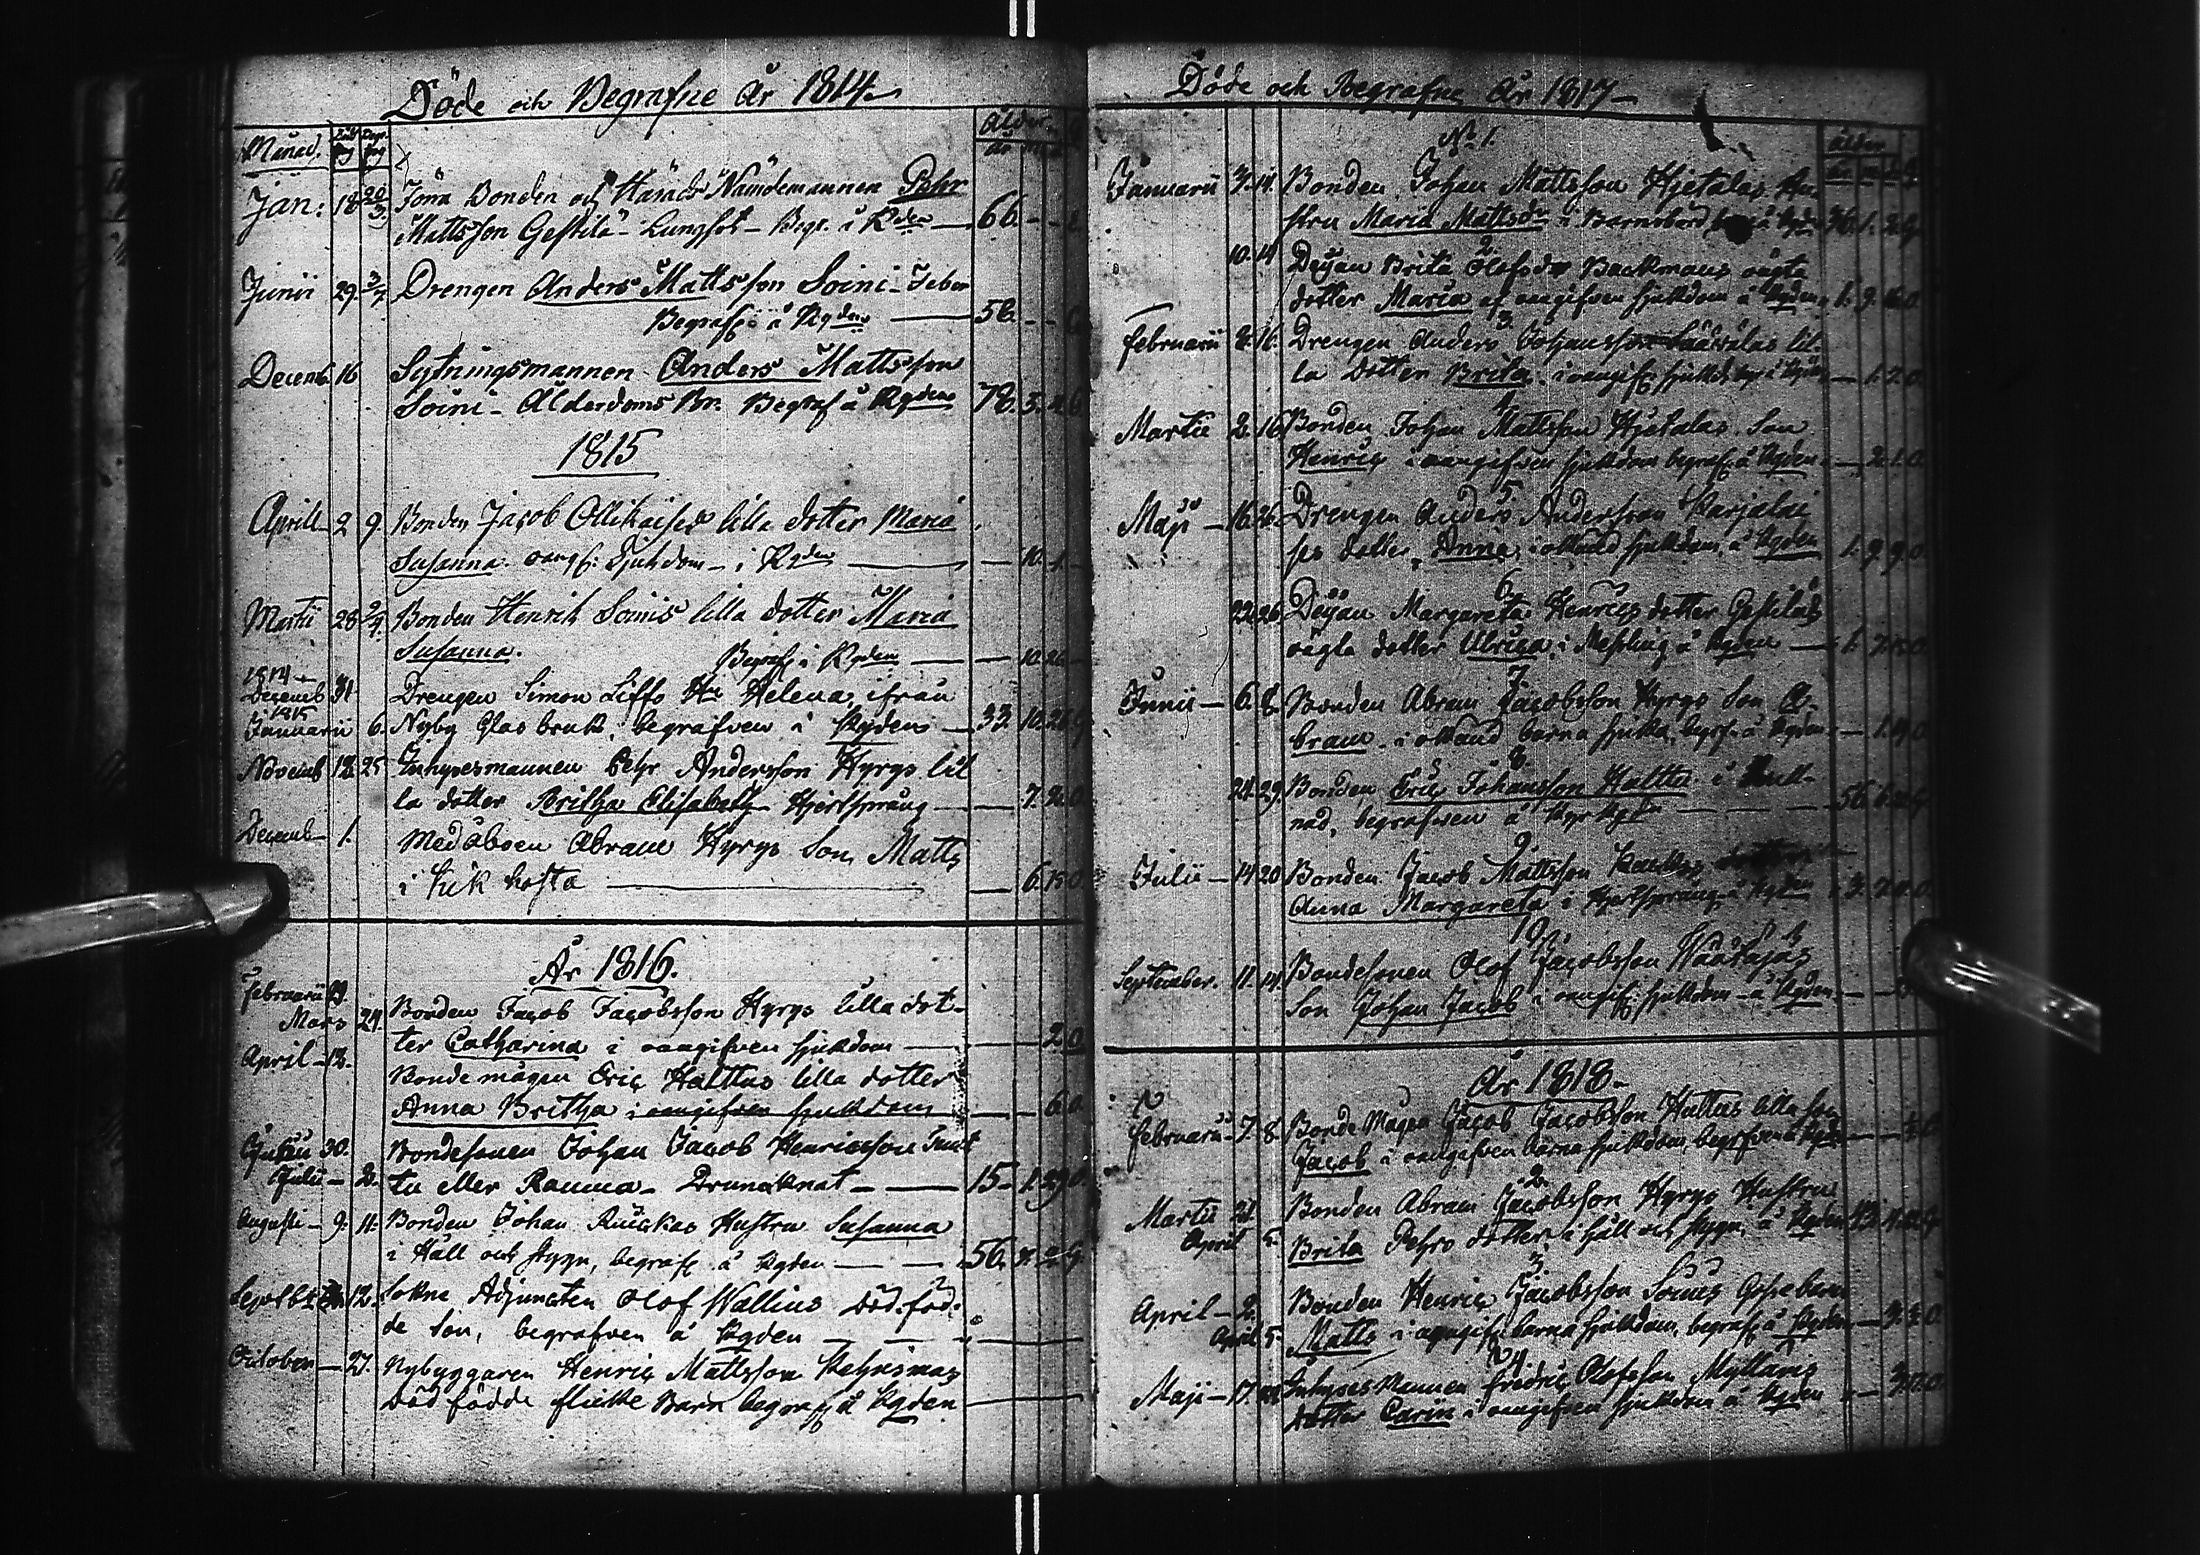 Döde och Begrafne År 1814
Månad. Ålder
Jan: 18 20/3 Förra Bonden och Härads Nämdemannen Pehr
Mattsson Gestilä - Lungsot - Begr. i Kgden — 66 - -
Junii 29. 3/7 Drengen Anders Mattsson Soini - Feber
Begrafn å Kgden — 58 - -
Decemb. 16 Sytningsmannen Anders Mattsson
Soini - Ålderdoms Br. Begraf å Kgden 78. 5.
1815
Aprill 2 9. Bonden Jacob Ollikaises lilla dotter Maria
Susanna. oangf: Sjukdom - i Kgden — 10. 1.
Martii 28 2/4 Bonden Henrik Soinis lilla dotter Maria
Susanna. Begraf i Kgden — 10. 26
1814
Decemb 31 Drengen Simon Liffs Hu Helena, ifrån
1815
Januarii 6. Nyby Glas bruk, begrafven i Kgden — 33. 10. 25
Novemb 18 25 Inhysesmannen Pehr Andersson Kyrgs lil
la dotter Britha Elisabeth Hjertsprång — 7.
Decemb 1. Medåboen Abram Kyrgs Son, Matts
i kik hosta — 6. 15. 0.
År 1816.
Februarii 29.
Mars 24. Bonden Jacob Jacobsson Kyrgs lilla dot-
ter Catharina i oangifven sjukdom — 2. 0
April 13.
Bondemågen Eric Halttus lilla dotter
Anna Britha i oangifven sjukdom — 6. 0
Junii 30. Bondesonen Johan Jacob Henricsson
Julii 2. tu eller Rauma - Drunknat — 15 - 1. 29 0
Augusti 9. 11. Bonden Johan Ruuskas Hustru Susanna
i Håll och stygn, begraf å Kgden — 56.
12. Sokne Adjuncten Olof Wallius död föd-
de son, begrafven å Kgden —
October — 27. Nybyggaren Henric Mattsson
död födde flicke Barn begraf å Kgden
Döde och Begrafne År 1817
No 1. Ålder
Januarii 7. 14. Bonden Johan Mattsson Hjetalas Hu
stru Maria Mattsdr i Barnsbörd, å Kgden 36. 1.
2.
10. 14 Deyan Brita Olofsdr Backmans oägta
dotter Maria af oangifven sjukdom å Kgden 1. 9.
3.
Februarii 8. 16. Drengen Anders Johansson lil-
la dotter Brita i oangifn sjukd. — 1. 2. 0.
4.
Martii 2. 16 Bonden Johan Mattsson Hjetalas Son
Henric i oangifven sjukdom begraf å Kgden — 2. 1. 0.
5.
Maji — 16. 26. Drengen Anders Andersson Karjalai
ses dotter, Anna i okänd sjukdom, å Kgden 1. 9. 9. 0
6.
22. 26 Deyan Margareta Henricsdotter Gestiläs
oägta dotter Ulrica, i Messling å Kgden — 1. 7.
7.
Junii — 6. 8. Bonden Abram Jacobsson Kyrgs Son A-
bram i okänd barna sjukd, begr. å Kgden — 1.
8.
24. 29. Bonden Eric Johansson Halttu i
nad, begrafven å Kgden — 56.
9.
Julii — 14 20 Bonden Jacob Mattsson dotter
Anna Margareta i Hjertsprång å Kgden
10.
September. 11. 14. Bondesonen Olof Jacobsson Wäätäjäs
Son Johan Jacob i oangif: sjukdom - å Kgden
År 1818.
Februarii 7. 8. Bonde Mågen Jacob Jacobsson Halttus lilla son
Jacob i oangifven barna sjukdom, begrafven å Kgden
2.
Martii 21 Bonden Abram Jacobsson Kyrgs Hustru
April 5. Brita Pehrs dotter i håll och stygn, å Kgden
3.
April — 2. Bonden Henric Jacobsson Soinis
April 5. Matts i oangif: barna sjukdom, begraf å Kgden
4.
Maji — 17. Inhyses Mannen Fredric Olofsson Mylläris
dotter Carin i oangifven sjukdom å Kgden